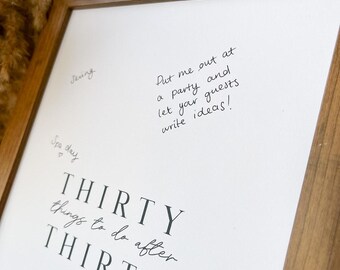 Put me out at
a party and
let your guests
write ideas!
Spa day
THIRTY
things to do after
THIRT